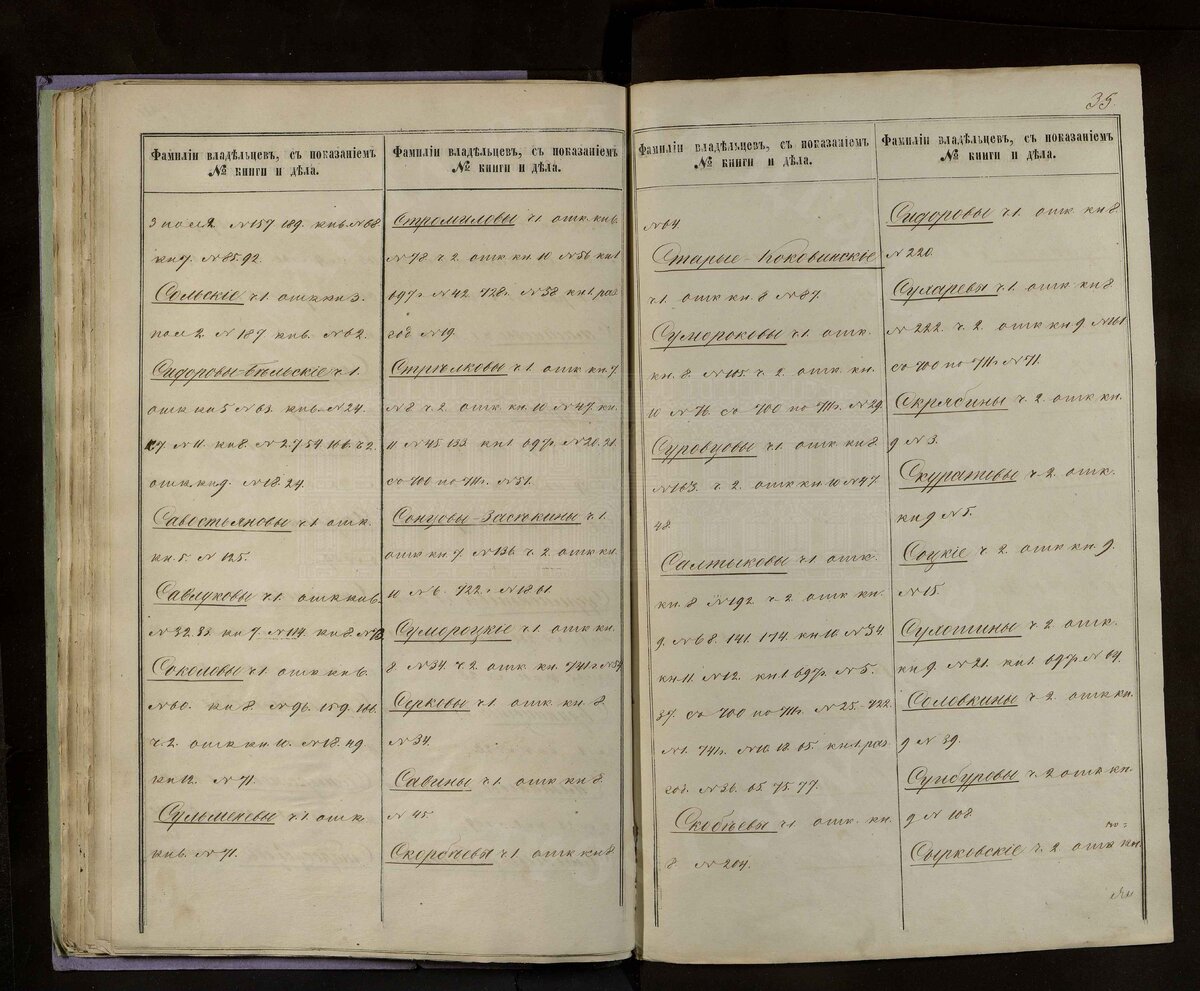 35.
Фамиліи владѣльцевъ, съ показаніемъ
№ книги и дѣла.
3 пол 2 № 157. 189. кн 6. № 68.
кн 7. № 85. 92.
Сольскіе ч 1. отк кн 3.
пол 2. № 187 кн 6. № 62.
Сидоровы-Бѣльскіе ч 1.
отк кн 5 № 63. кн 6. № 24.
№ 11. кн 8. № 2. 7. 54. 166. ч 2.
отк. кн 9. № 18. 24.
Савостьяновы ч 1 отк.
кн 5. № 125.
Савлуковы ч 1 отк кн 6.
№ 32. 38. кн 7. № 114. кн 8
Соколовы ч 1 отк кн 6.
№ 60. кн 8 № 96. 159. 161.
ч 2. отк кн 10. № 18. 49.
кн 12. № 71.
Сульменевы ч 1 отк
кн 6. № 71.
Фамиліи владѣльцевъ, съ показаніемъ
№ книги и дѣла.
Стромиловы ч 1 отк. кн 6.
№ 78 ч 2 отк. кн. 10 № 56 кн 1
697 г № 42 728 г. № 58 кн 1 раз
год № 19.
Стрѣлковы ч 1. отк кн 7
№ 8 ч 2. отк. кн. 10 № 47. кн.
11 № 45. 133. кн 1 697 г. № 20. 21.
съ 700 по 711 г. № 51.
Сонцовы-Засѣкины ч 1.
отк кн. 7. № 136. ч 2. отк кн.
10 № 6. 722 г. № 18. 61.
Сумороцкіе ч 1. отк кн.
8 № 34. ч 2. отк. кн. 741 г № 54
Серковы ч 1 отк кн. 8
№ 34.
Савины ч 1. отк кн 8.
№ 45.
Скорбѣевы ч 1 отк кн 8
Фамиліи владѣльцевъ, съ показаніемъ
№ книги и дѣла.
№ 64.
Старые-Коковинскіе
ч 1. отк кн. 8 № 87.
Сумороковы ч 1. отк.
кн. 8. № 105. ч 2. отк. кн.
10 № 76. съ 700 по 711 г. № 29.
Суровцовы ч 1. отк кн 8.
№ 163. ч 2. отк кн 10 № 47.
48.
Салтыковы ч 1 отк.
кн. 8 № 192. ч 2. отк. кн.
9. № 68. 141. 174. кн 10. № 34.
кн 11. № 12. кн 1 697 г. № 5.
37. съ 700 по 711 г. № 25. 722.
№ 1. 741 г. № 10. 12. 65. кн 1. раз.
год. № 36. 65. 75. 77.
Скобѣевы ч 1. отк. кн.
8 № 204.
Фамиліи владѣльцевъ, съ показаніемъ
№ книги и дѣла.
Сидоровы ч 1. отк кн 8.
№ 220.
Сухаревы ч 1. отк кн 8
№ 222. ч. 2. отк кн 9 № 161
съ 700 по 711 г № 71.
Скрябины ч 2. отк кн.
9 № 3.
Скуратовы ч 2. отк.
кн 9 № 5.
Соцкіе ч 2. отк кн. 9.
№ 15.
Сулотины ч 2. отк.
кн 9. № 21. кн 1. 697 г. № 64.
Соловкины ч 2. отк кн.
9 № 39.
Сунбуровы ч. 2 отк кн.
9 № 108.
Сырковскіе ч. 2. отк кн.